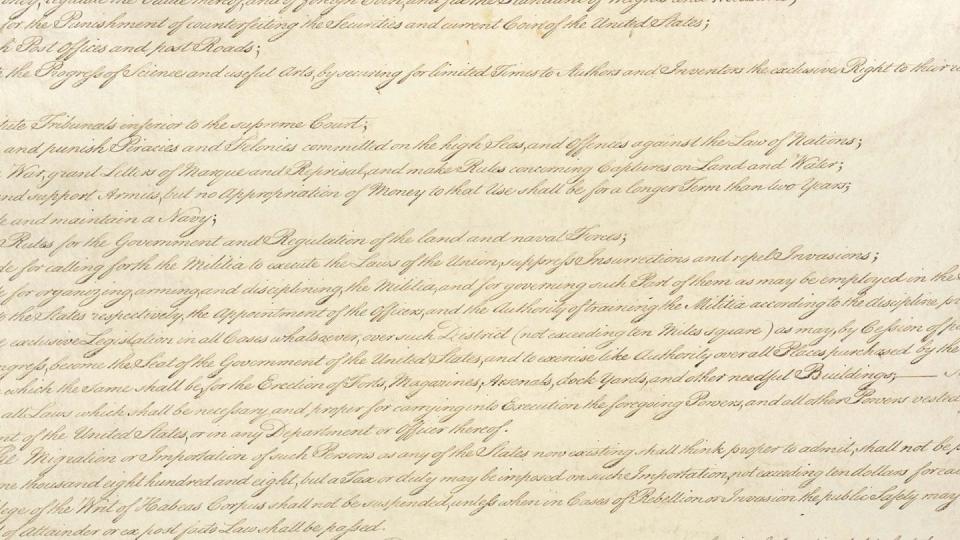 regulate the Value thereof, and of foreign Coin, and fix the Standard of Weights and Measures;
for the Punishment of counterfeiting the Securities and current Coin of the United States;
Post Offices and post Roads;
the Progress of Science and useful Arts, by securing for limited Times to Authors and Inventors the exclusive Right to their
Tribunals inferior to the supreme Court;
and punish Piracies and Felonies committed on the high Seas, and Offences against the Law of Nations;
War, grant Letters of Marque and Reprisal, and make Rules concerning Captures on Land and Water;
and support Armies, but no Appropriation of Money to that Use shall be for a longer Term than two Years;
and maintain a Navy;
Rules for the Government and Regulation of the land and naval Forces;
for calling forth the Militia to execute the Laws of the Union, suppress Insurrections and repel Invasions;
for organizing, arming, and disciplining, the Militia, and for governing such Part of them as may be employed in the
the States respectively, the Appointment of the Officers, and the Authority of training the Militia according to the discipline
exclusive Legislation in all Cases whatsoever, over such District (not exceeding ten Miles square) as may, by Cession of
become the Seat of the Government of the United States, and to exercise like Authority over all Places purchased by the
which the Same shall be, for the Erection of Forts, Magazines, Arsenals, dock-Yards, and other needful Buildings;—
all Laws which shall be necessary and proper for carrying into Execution the foregoing Powers, and all other Powers vested
of the United States, or in any Department or Officer thereof.
Migration or Importation of such Persons as any of the States now existing shall think proper to admit, shall not be
thousand eight hundred and eight, but a Tax or duty may be imposed on such Importation, not exceeding ten dollars for
of the Writ of Habeas Corpus shall not be suspended, unless when in Cases of Rebellion or Invasion the public Safety may
of Attainder or ex post facto Law shall be passed.